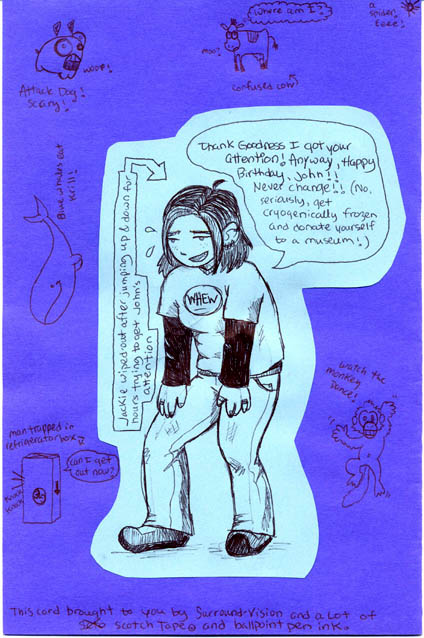 where am I?
a
spider!
Eeee!
moo?
woof!
Attack Dog!
Scary!
confused cow
Thank Goodness I got your
attention! Anyway, Happy
Birthday, John!!
Never change!! (No,
seriously, get
cryogenically frozen
and donate yourself
to a museum!)
Blue whales eat
krill!
Jackie wiped out after jumping up & down for
hours trying to get John's
attention
WHEW
watch the
monkey
Dance!
man trapped in
refrigerator box
can I get
out now?
knock
knock
This card brought to you by Surround-Vision and a lot of
scotch Tape and ballpoint pen ink.